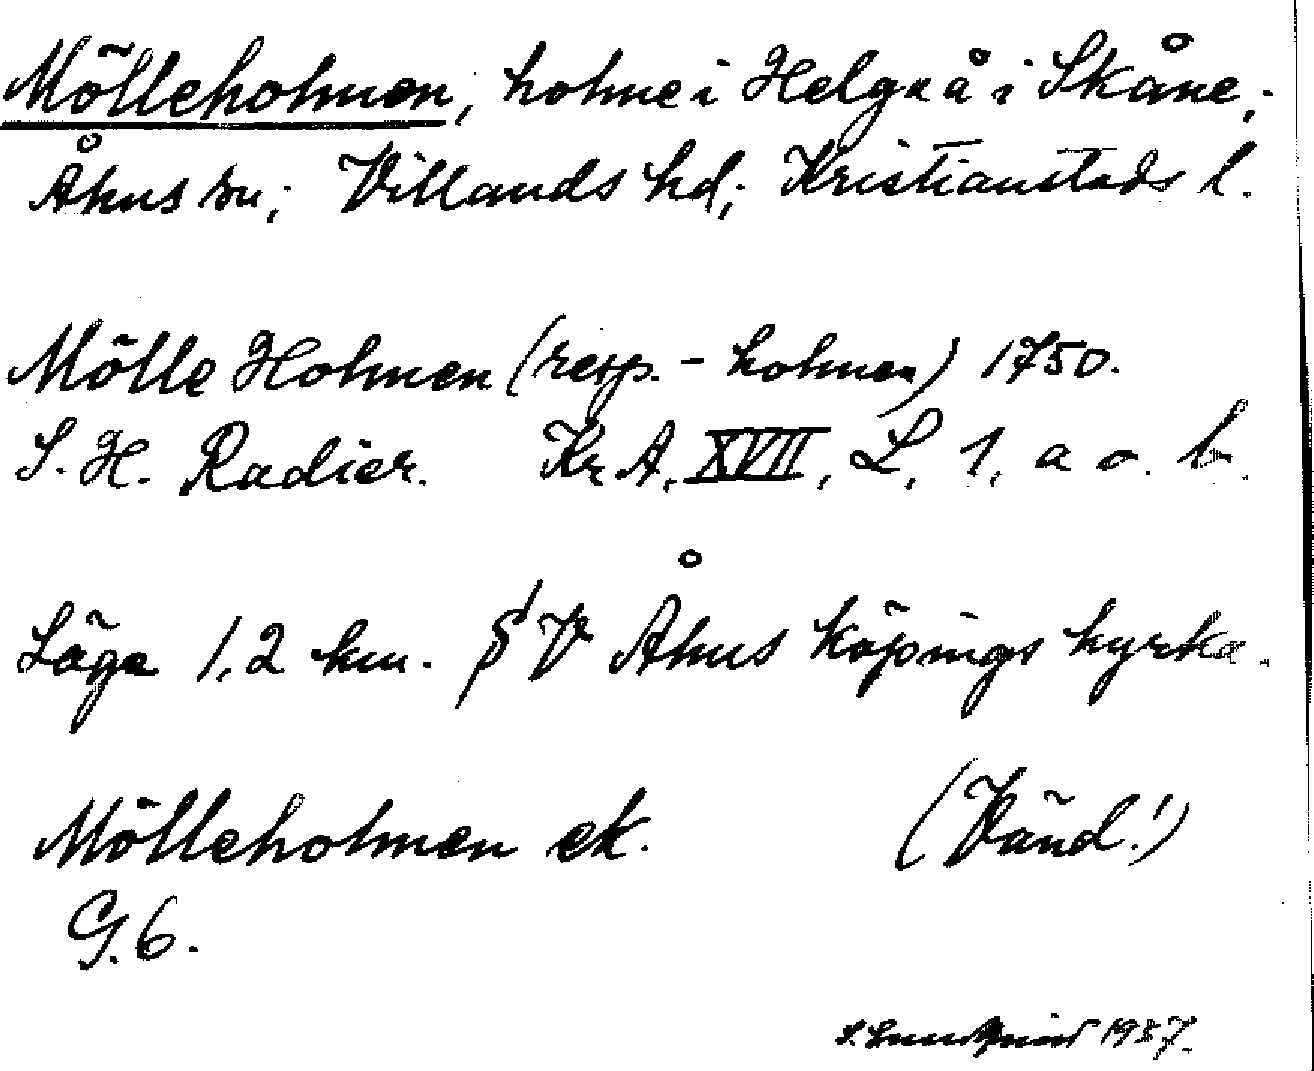 Mölleholmen, holme i Helgeå i Skåne;
Åhus sn; Villands hd; Kristianstads l.
Mölle Holmen (resp. - holmen) 1750.
S. H. Radier. Kr A. XVII, L, 1, a o. b.
Läge 1,2 km. V Åhus köpings kyrka.
Mölleholmen ek. (Vänd!)
G. 6.
S. Lundqvist 1937.